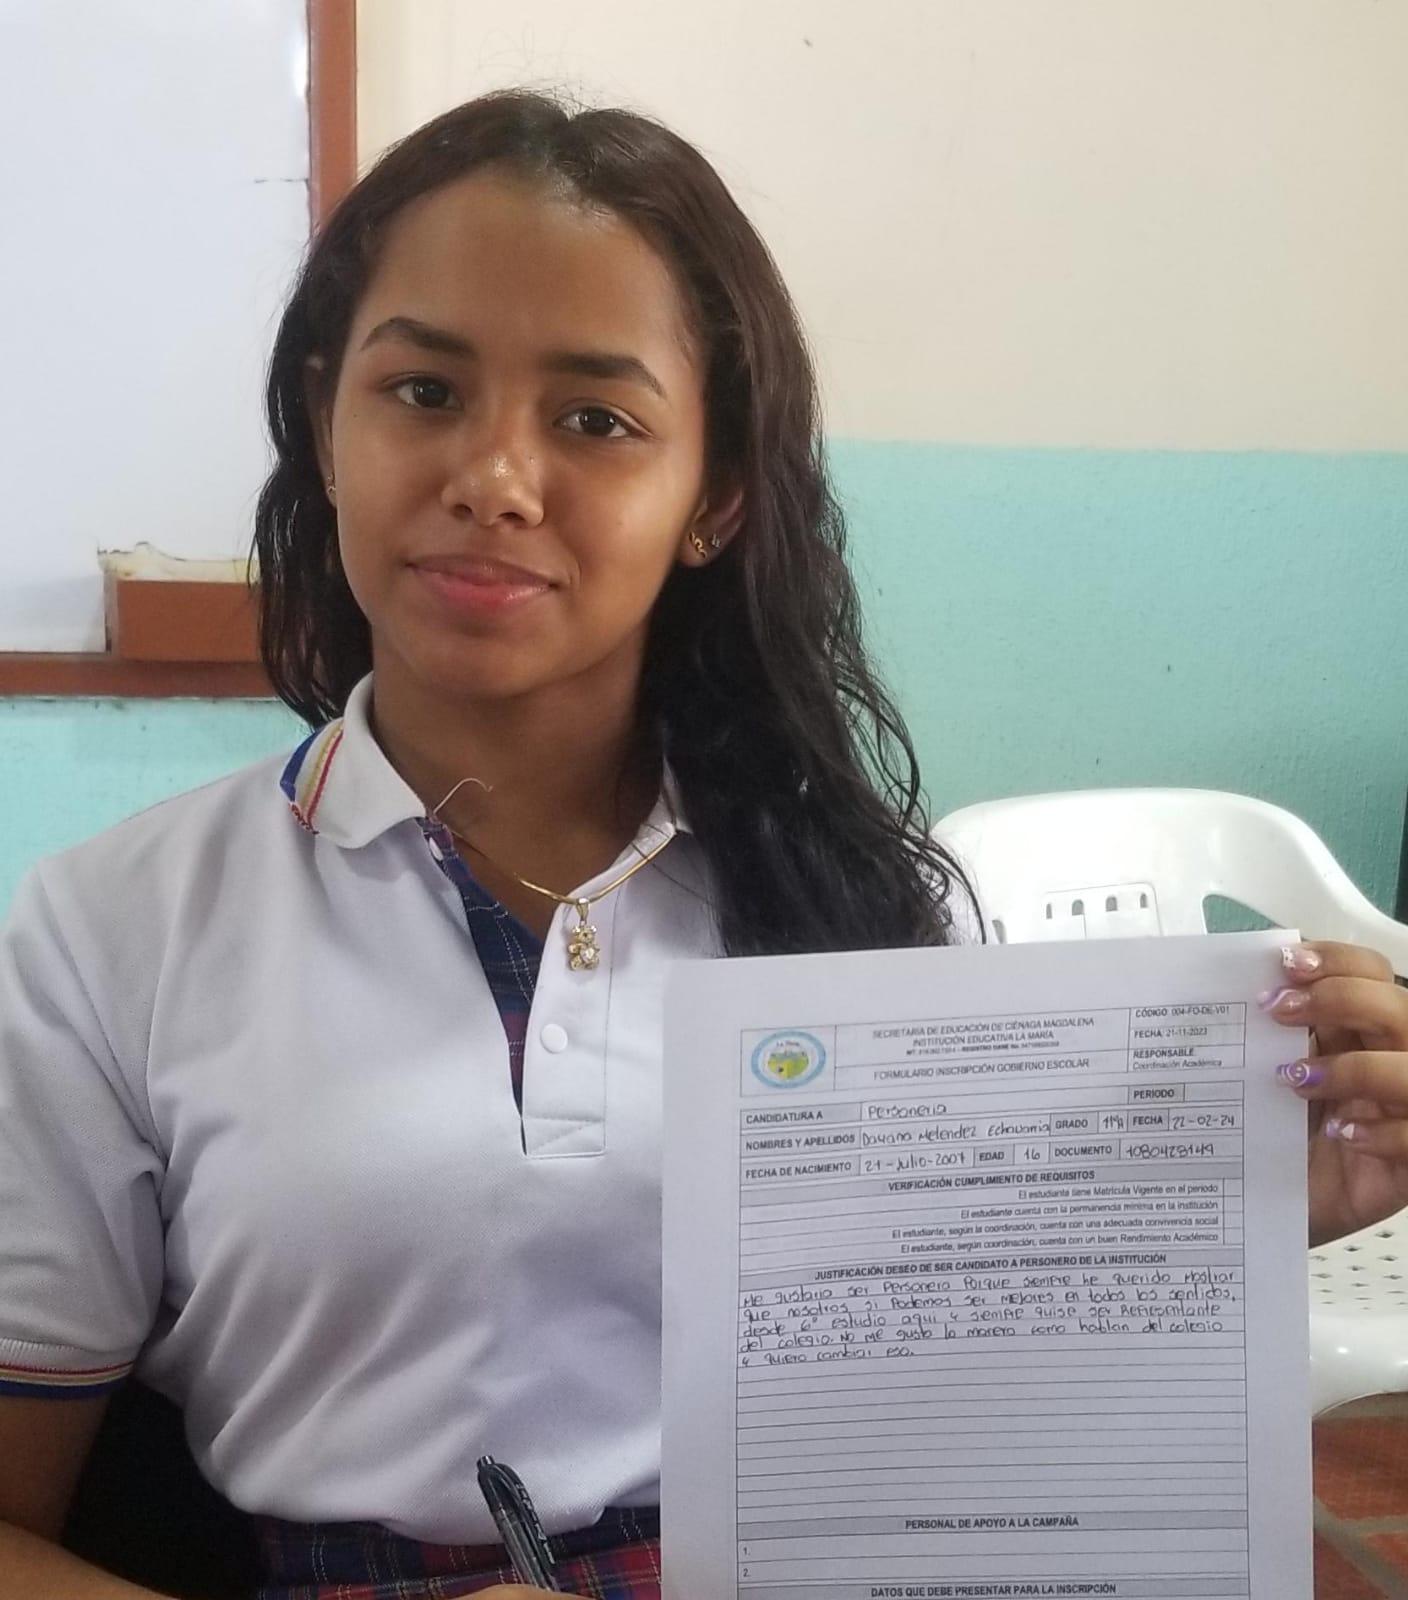 La María
SECRETARIA DE EDUCACIÓN DE CIÉNAGA MAGDALENA
INSTITUCIÓN EDUCATIVA LA MARÍA
FORMULARIO INSCRIPCIÓN GOBIERNO ESCOLAR
CÓDIGO: 004-FO-DE-V01
FECHA: 21-11-2023
RESPONSABLE:
Coordinación Académica
PERIODO
CANDIDATURA A Personeria
NOMBRES Y APELLIDOS Dayana Melendez Echavarria GRADO 11ºA FECHA 22-02-24
FECHA DE NACIMIENTO 21-Julio-2007 EDAD 16 DOCUMENTO 1080428149
VERIFICACIÓN CUMPLIMIENTO DE REQUISITOS
El estudiante tiene Matrícula Vigente en el periodo
El estudiante cuenta con la permanencia mínima en la institución
El estudiante, según la coordinación, cuenta con una adecuada convivencia social
El estudiante, según coordinación, cuenta con un buen Rendimiento Académico
JUSTIFICACIÓN DESEO DE SER CANDIDATO A PERSONERO DE LA INSTITUCIÓN
Me gustaria ser Personera Porque siempre he querido Mostrar
que nosotros si Podemos ser Mejores en todos los sentidos,
desde 6º estudio aqui y siempre quise ser Representante
del colegio. No Me gusta la manera como hablan del colegio
y quiero cambiar eso.
PERSONAL DE APOYO A LA CAMPAÑA
1.
2.
DATOS QUE DEBE PRESENTAR PARA LA INSCRIPCIÓN